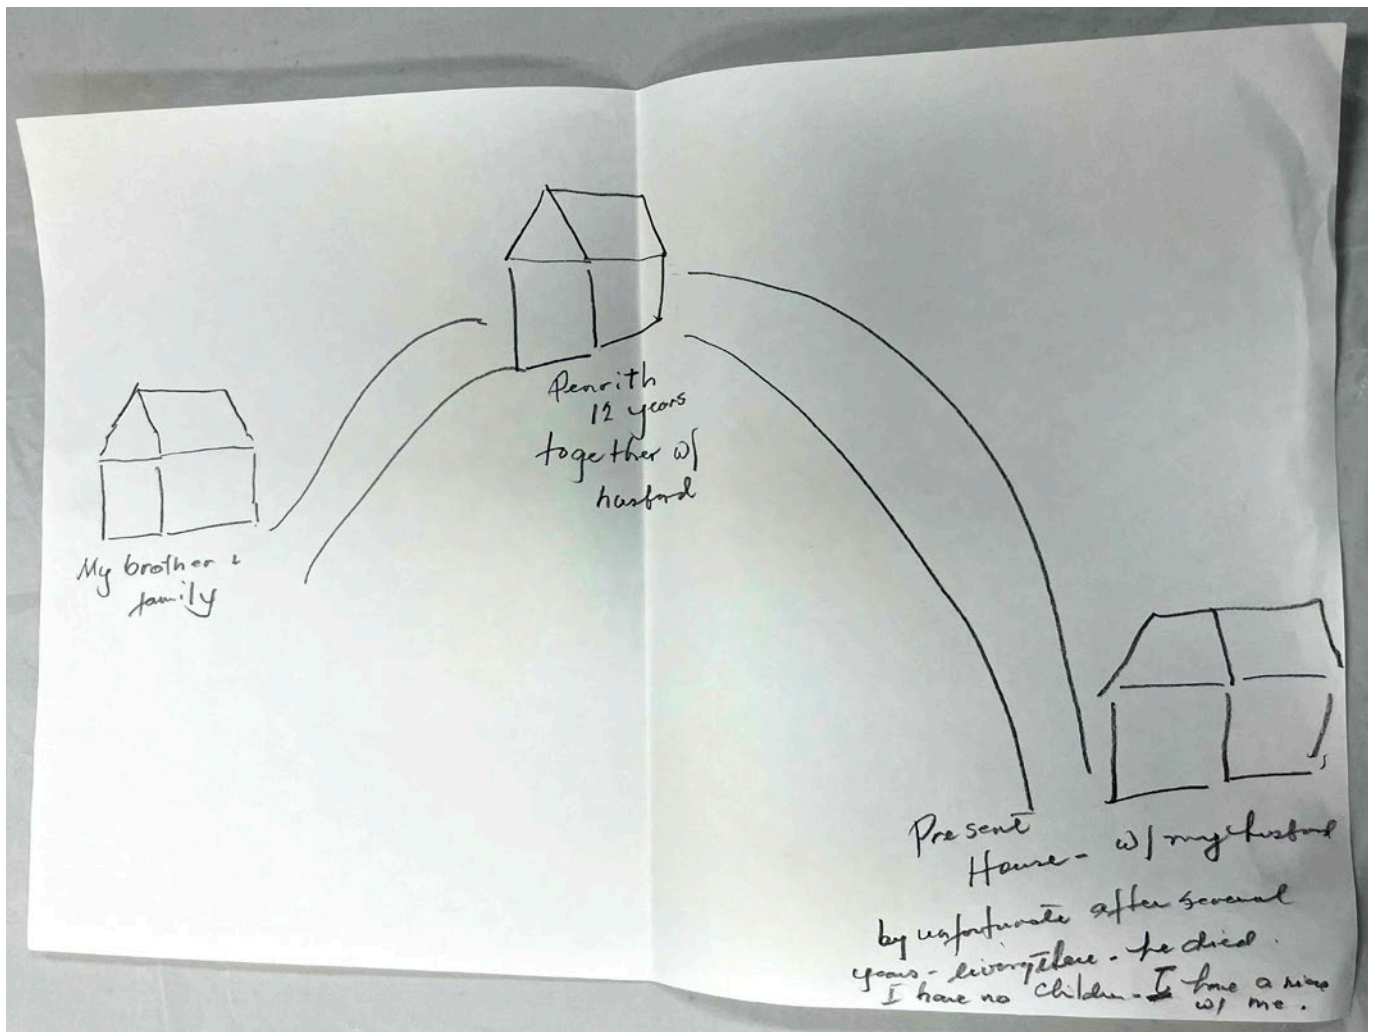 My brother &
family
Penrith
12 years
together w/
husband
Present
House - w/ my husband
by unfortunate after several
years - living there - he died.
I have no children - I have a niece
w/ me.